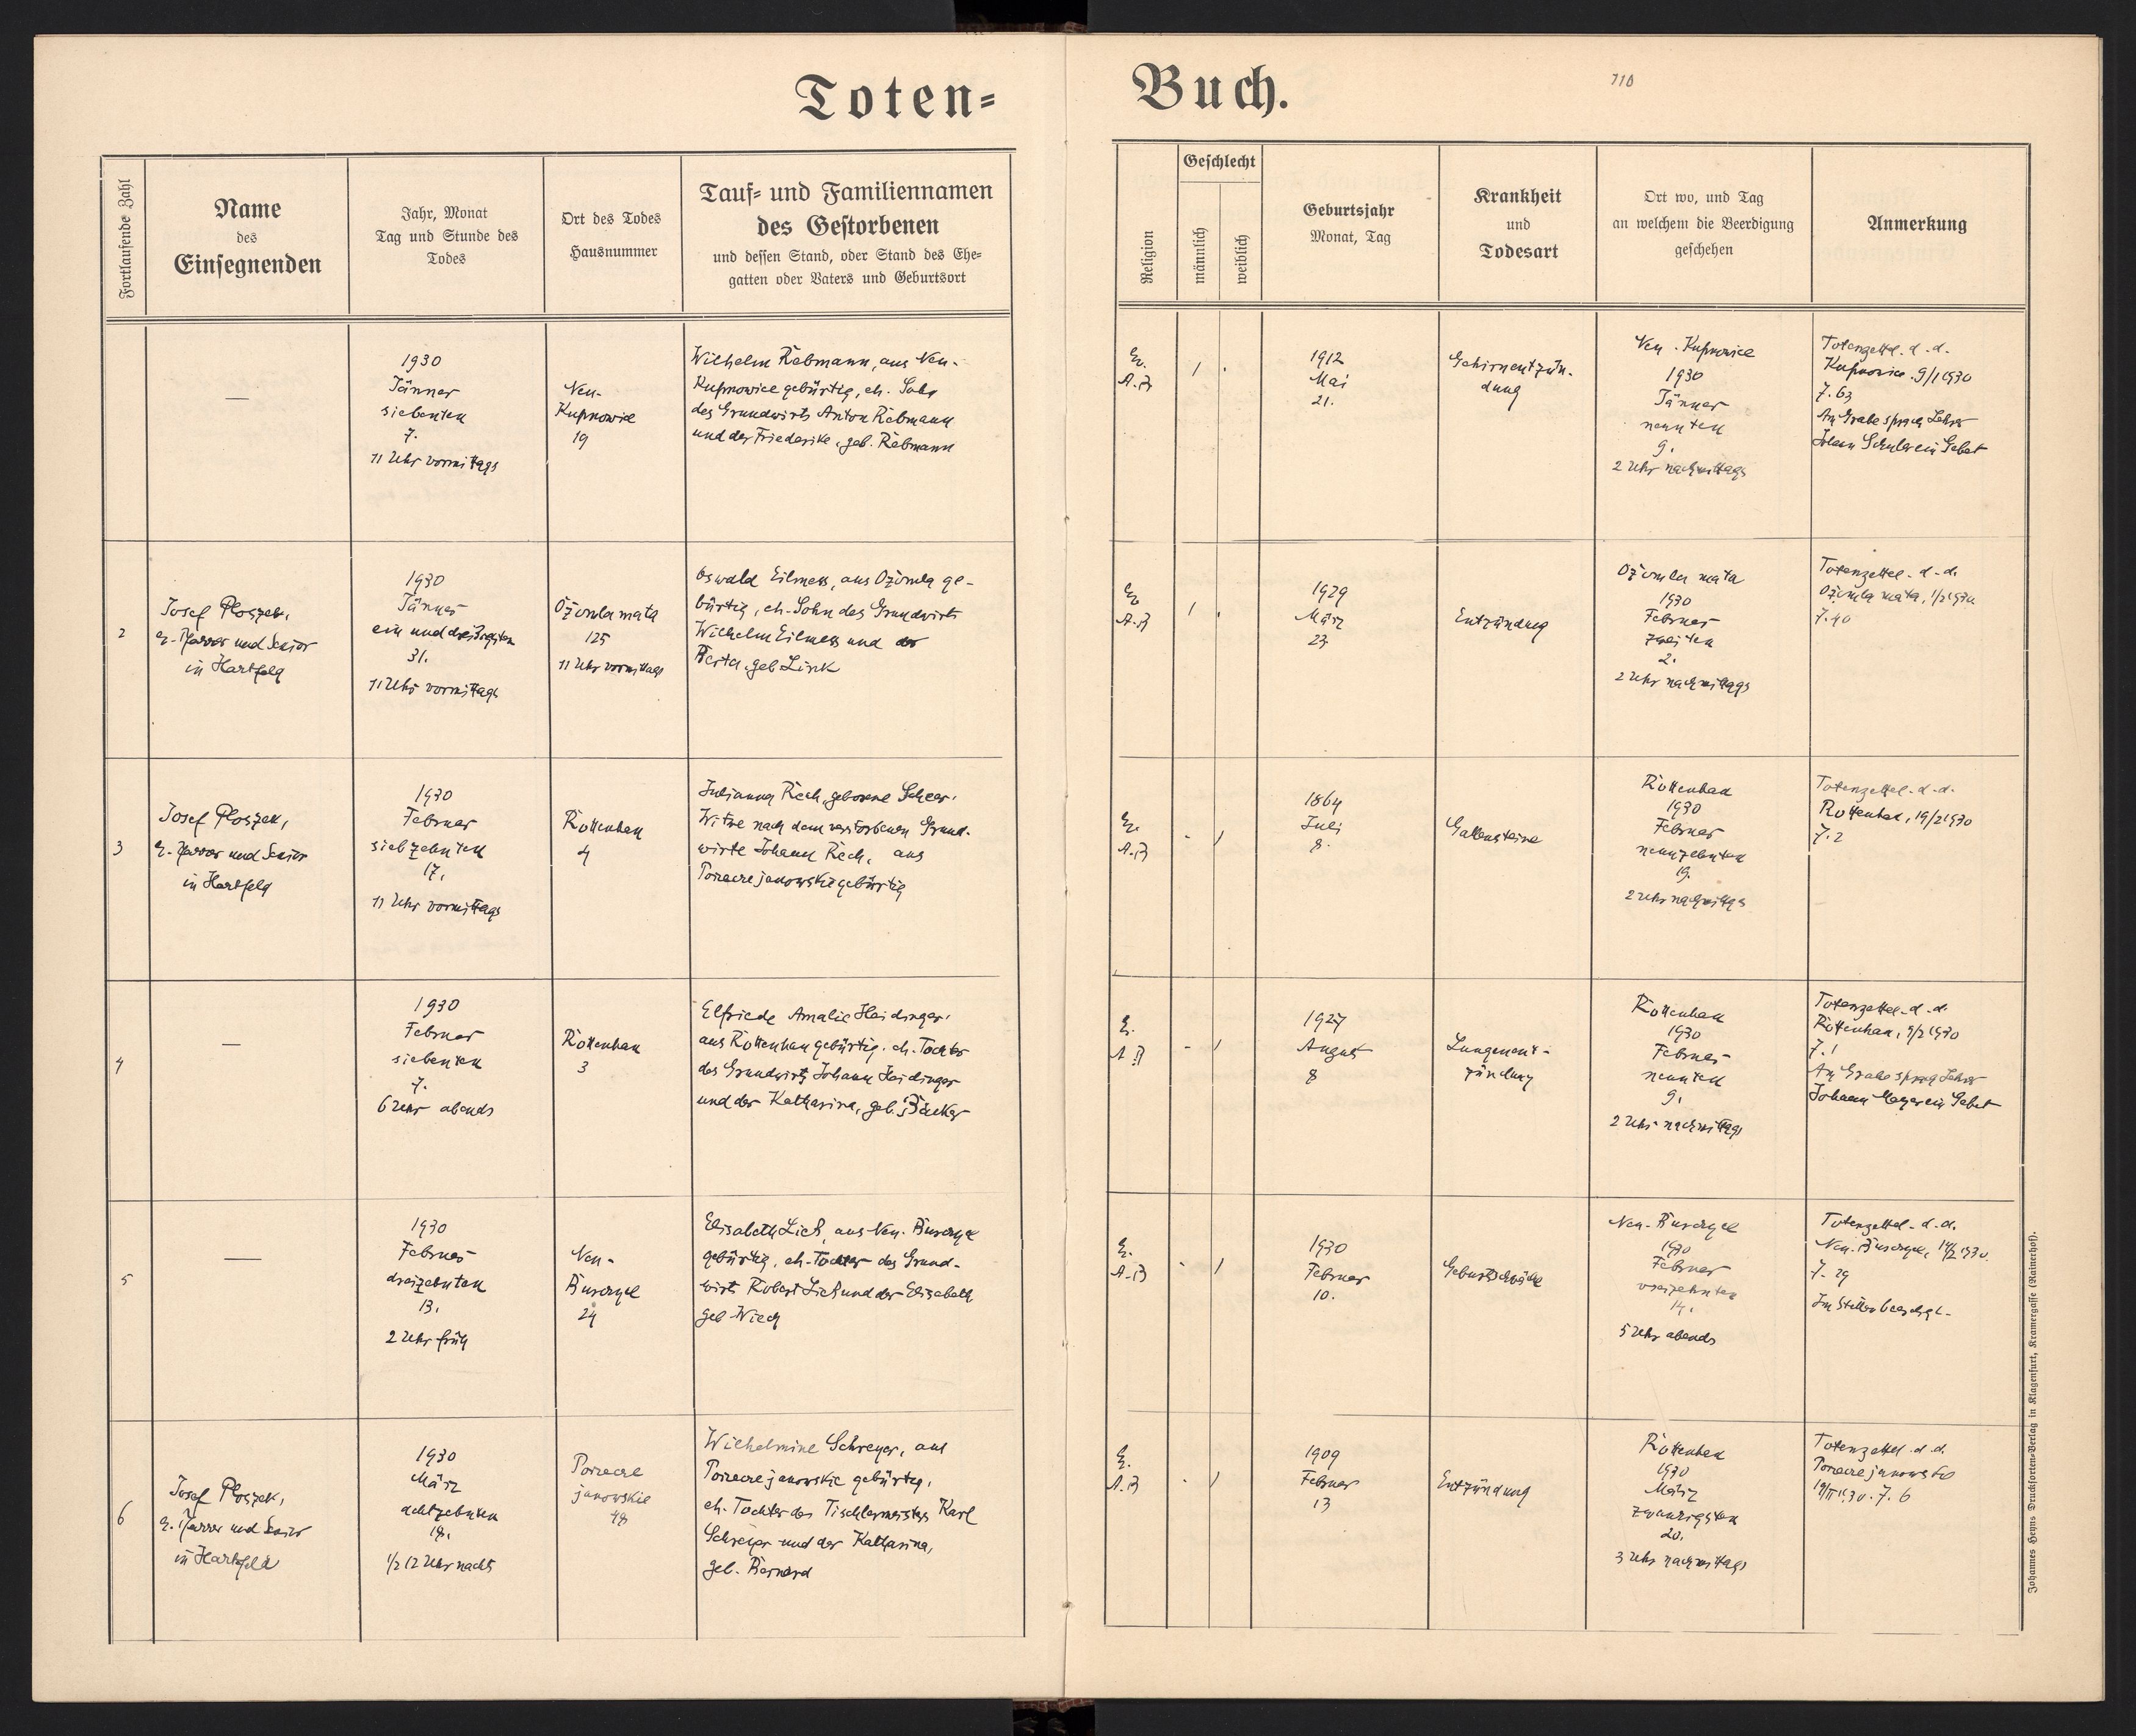 Toten=
Buch.
710
Fortlaufende Zahl
Name
des
Einsegnenden
Jahr, Monat
Tag und Stunde des
Todes
Ort des Todes
Hausnummer
Tauf= und Familiennamen
des Gestorbenen
und dessen Stand, oder Stand des Ehe=
gatten oder Vaters und Geburtsort
Religion
Geschlecht
männlich
weiblich
Geburtsjahr
Monat, Tag
Krankheit
und
Todesart
Ort wo, und Tag
an welchem die Beerdigung
geschehen
Anmerkung
—
1930
Jänner
siebenten
7.
11 Uhr vormittags
Neu-
Kupnowice
19
Wilhelm Rebmann, aus Neu-
Kupnowice gebürtig, eh. Sohn
des Grundwirts Anton Rebmann
und der Friederike, geb. Rebmann
Ev.
A.B
1912
Mai
21.
Gehirnentzün-
dung
Neu-Kupnowice
1930
Jänner
neunten
9.
2 Uhr nachmittags
Totenzettel. d. d.
Kupnowice. 9/1 1930
7.63
Am Grabe sprach Lehrer
Johann Schuler ein Gebet
2
Josef Ploszek,
ev. Pfarrer und Senior
in Hartfeld
1930
Jänner
ein und dreißigsten
31.
11 Uhr vormittags
Ożomla mała
125
11 Uhr vormittags
Oswald Eilmess, aus Ożomla ge-
bürtig, eh. Sohn des Grundwirts
Wilhelm Eilmess und
Berta, geb Link
Ev.
A.B
1929
März
23.
Entzündung
Ożomla mała
1930
Februar
zweiten
2.
2 Uhr nachmittags
Totenzettel. d. d.
Ożomla mała, 1/2 1930
7.40
3
Josef Ploszek,
ev. Pfarrer und Senior
in Hartfeld
1930
Februar
siebzehnten
17.
11 Uhr vormittags
Rottenhan
4
Julianna Rech, geborene Scheer,
Witwe nach dem verstorbenen Grund-
wirte Johann Rech, aus
Porzecze janowskie gebürtig
Ev.
A.B
1864
Juli
8.
Gallensteine
Rottenhan
1930
Februar
neunzehnten
19.
2 Uhr nachmittags
Totenzettel. d. d.
Rottenhan, 19/2 1930
7.2
4
—
1930
Februar
siebenten
7.
6 Uhr abends
Rottenhan
3
Elfriede Amalie Haidinger,
aus Rottenhan gebürtig, eh. Tochter
des Grundwirts Johann Haidinger
und der Katharina, geb. Bäcker
E.
A.B
1927
August
8
Lungenent-
zündung
Rottenhan
1930
Februar
neunten
9.
2 Uhr nachmittags
Totenzettel. d. d.
Rottenhan, 9/2 1930
7.1
Am Grabe sprach Lehrer
Johann Mayer ein Gebet
5
—
1930
Februar
dreizehnten
13.
2 Uhr früh
Neu-
Bruszyel
24
Elisabeth Lich, aus Neu-
gebürtig, eh. Tochter des Grund-
wirts Robert Lich und der Elisabeth
geb. Wiech
E.
A.B
1930
Februar
10.
Geburtsschwäche
1930
Februar
vierzehnten
14.
5 Uhr abends
Totenzettel. d. d.
Neu- 14/2 1930.
7.29
Im Stillen beerdigt.
6
Josef Ploszek,
ev. Pfarrer und Senior
in Hartfeld
1930
März
achtzehnten
18.
1/2 12 Uhr nachts
Porzecze
janowskie
48
Wilhelmine Schreyer, aus
Porzecze janowskie gebürtig,
eh. Tochter des Tischlermeisters Karl
Schreyer und der Katharina,
geb. Bernard
E.
A.B
1909
Februar
13
Entzündung
Rottenhan
1930
März
zwanzigsten
20.
3 Uhr nachmittags
Totenzettel. d. d.
Porzecze janowskie
19/III 1930. 7.6
Johannes Heyns Drucksorten-Verlag in Klagenfurt, Kramergasse (Rainerhof).